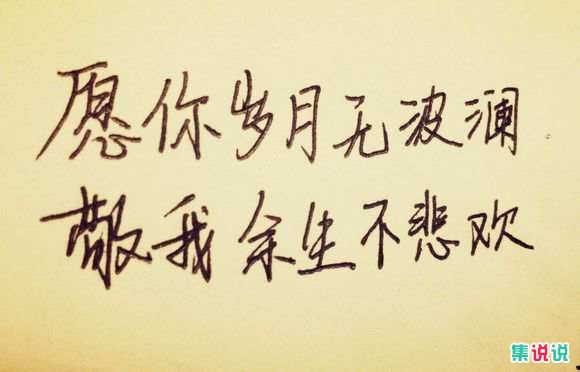 愿你岁月无波澜
敬我余生不悲欢
集说说